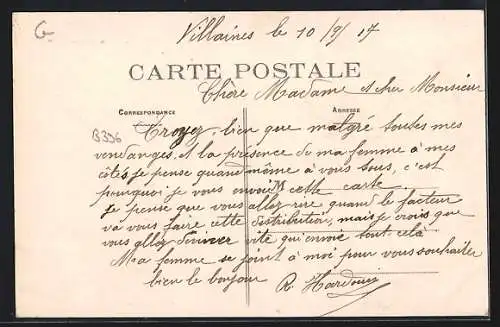 G
Villaines le 10/9/17
CARTE POSTALE
Chère Madame et cher Monsieur
CORRESPONDANCE
ADRESSE
B396
Croyez bien que malgré toutes mes
vendanges et la présence de ma femme à mes
côtés je pense quand même à vous tous, c'est
pourquoi je vous envoie cette carte.
je pense que vous allez rire quand le facteur
va vous faire cette distribution, mais je crois que
vous allez deviner vite qui envoie tout celà
Ma femme se joint à moi pour vous souhaiter
bien le bonjour R. Hardouin